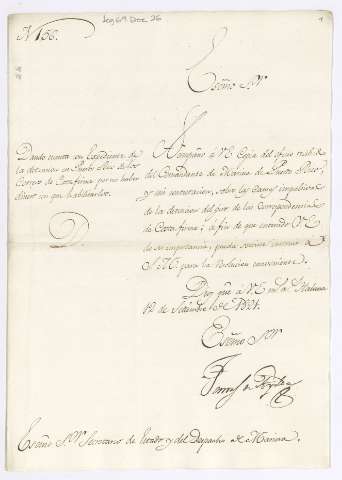 Leg 69 Doc 26
1
N 156.
Exmo Sor
Dando cuenta en Expediente de
la detencion en Puerto Rico de los
Correos de Costa firme por no haber
dinero con que habilitarlos.
Acompaño à V.E. Copia del oficio recibido
del Comandante de Marina de Puerto Rico,
y mi contestacion, sobre las causas
de la detencion del giro de las Correspondencias
de Costa firme; à fin de que enterado V.E.
de su importancia, pueda servirse
S.M. para la Resolucion conveniente.
Dios gue à V.E. m.s a.s Habana
12 de Setiembre de
Exmo Sor
Exmo Sor Secretario de Estado y del Despacho de Marina.